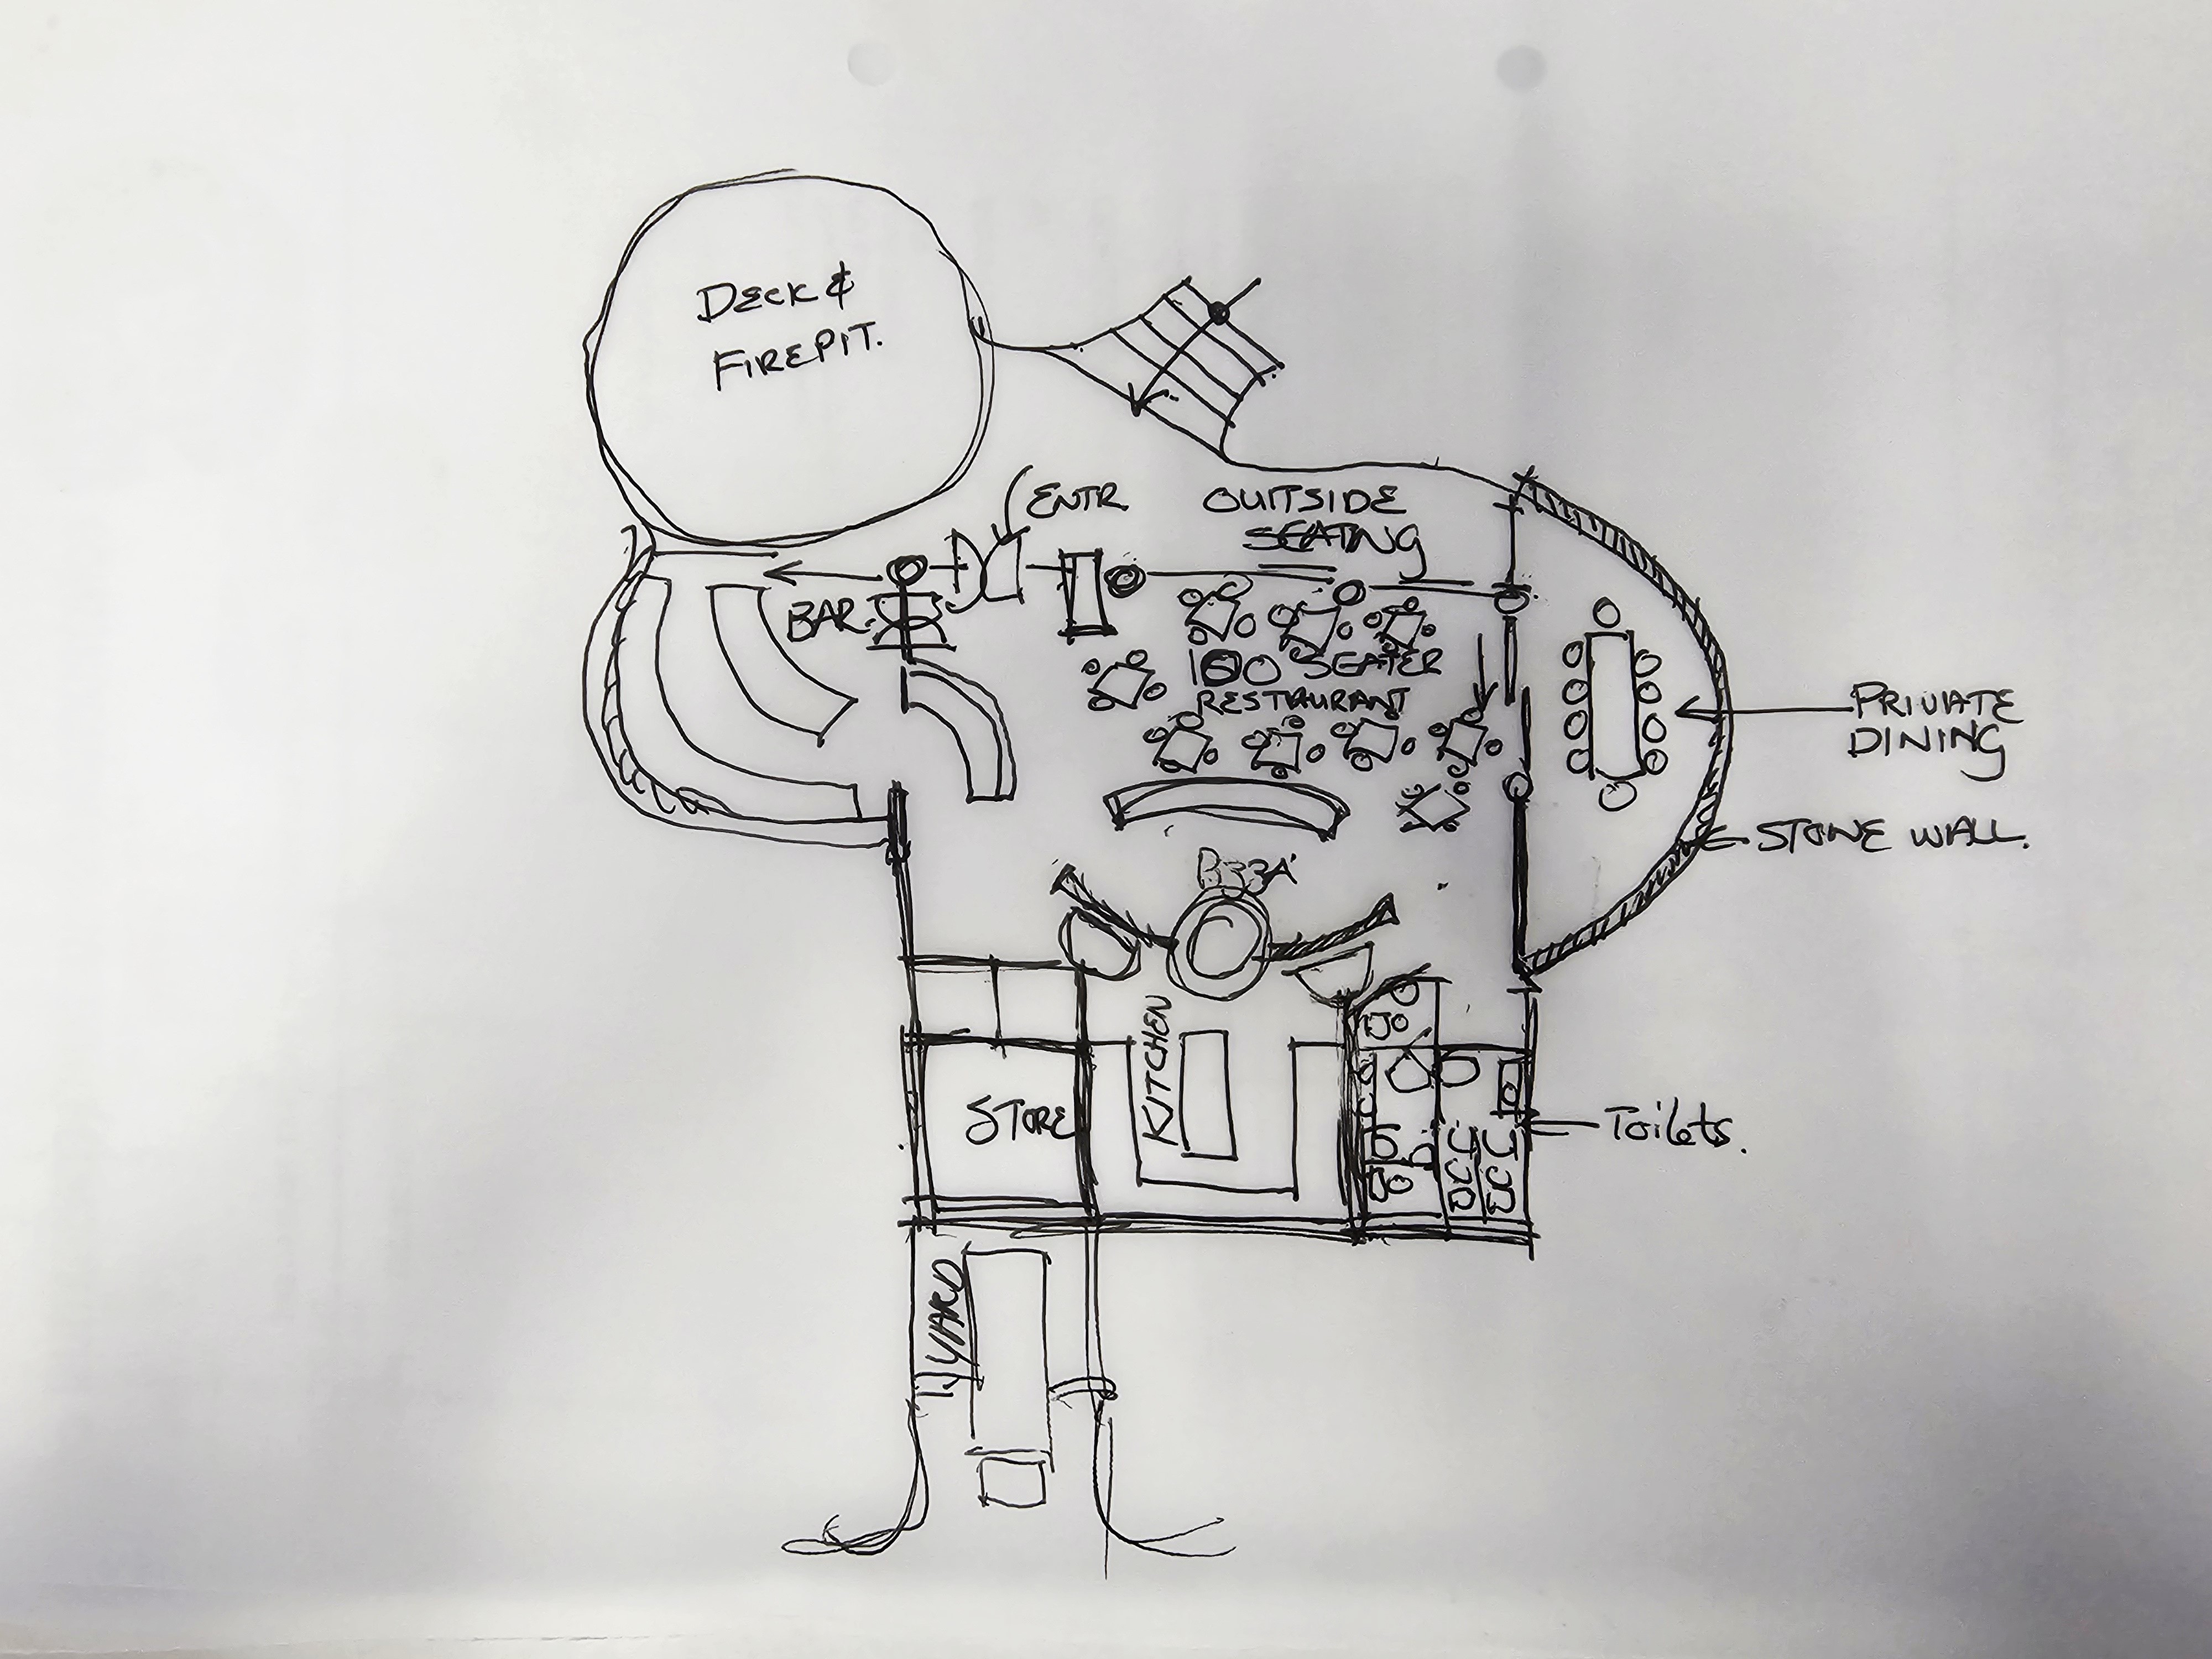 DECK &
FIREPIT.
ENTR
OUTSIDE
SEATING
BAR
SEATER
RESTAURANT
PRIVATE
DINING
STONE WALL.
KITCHEN
STORE
Toilets.
YARD